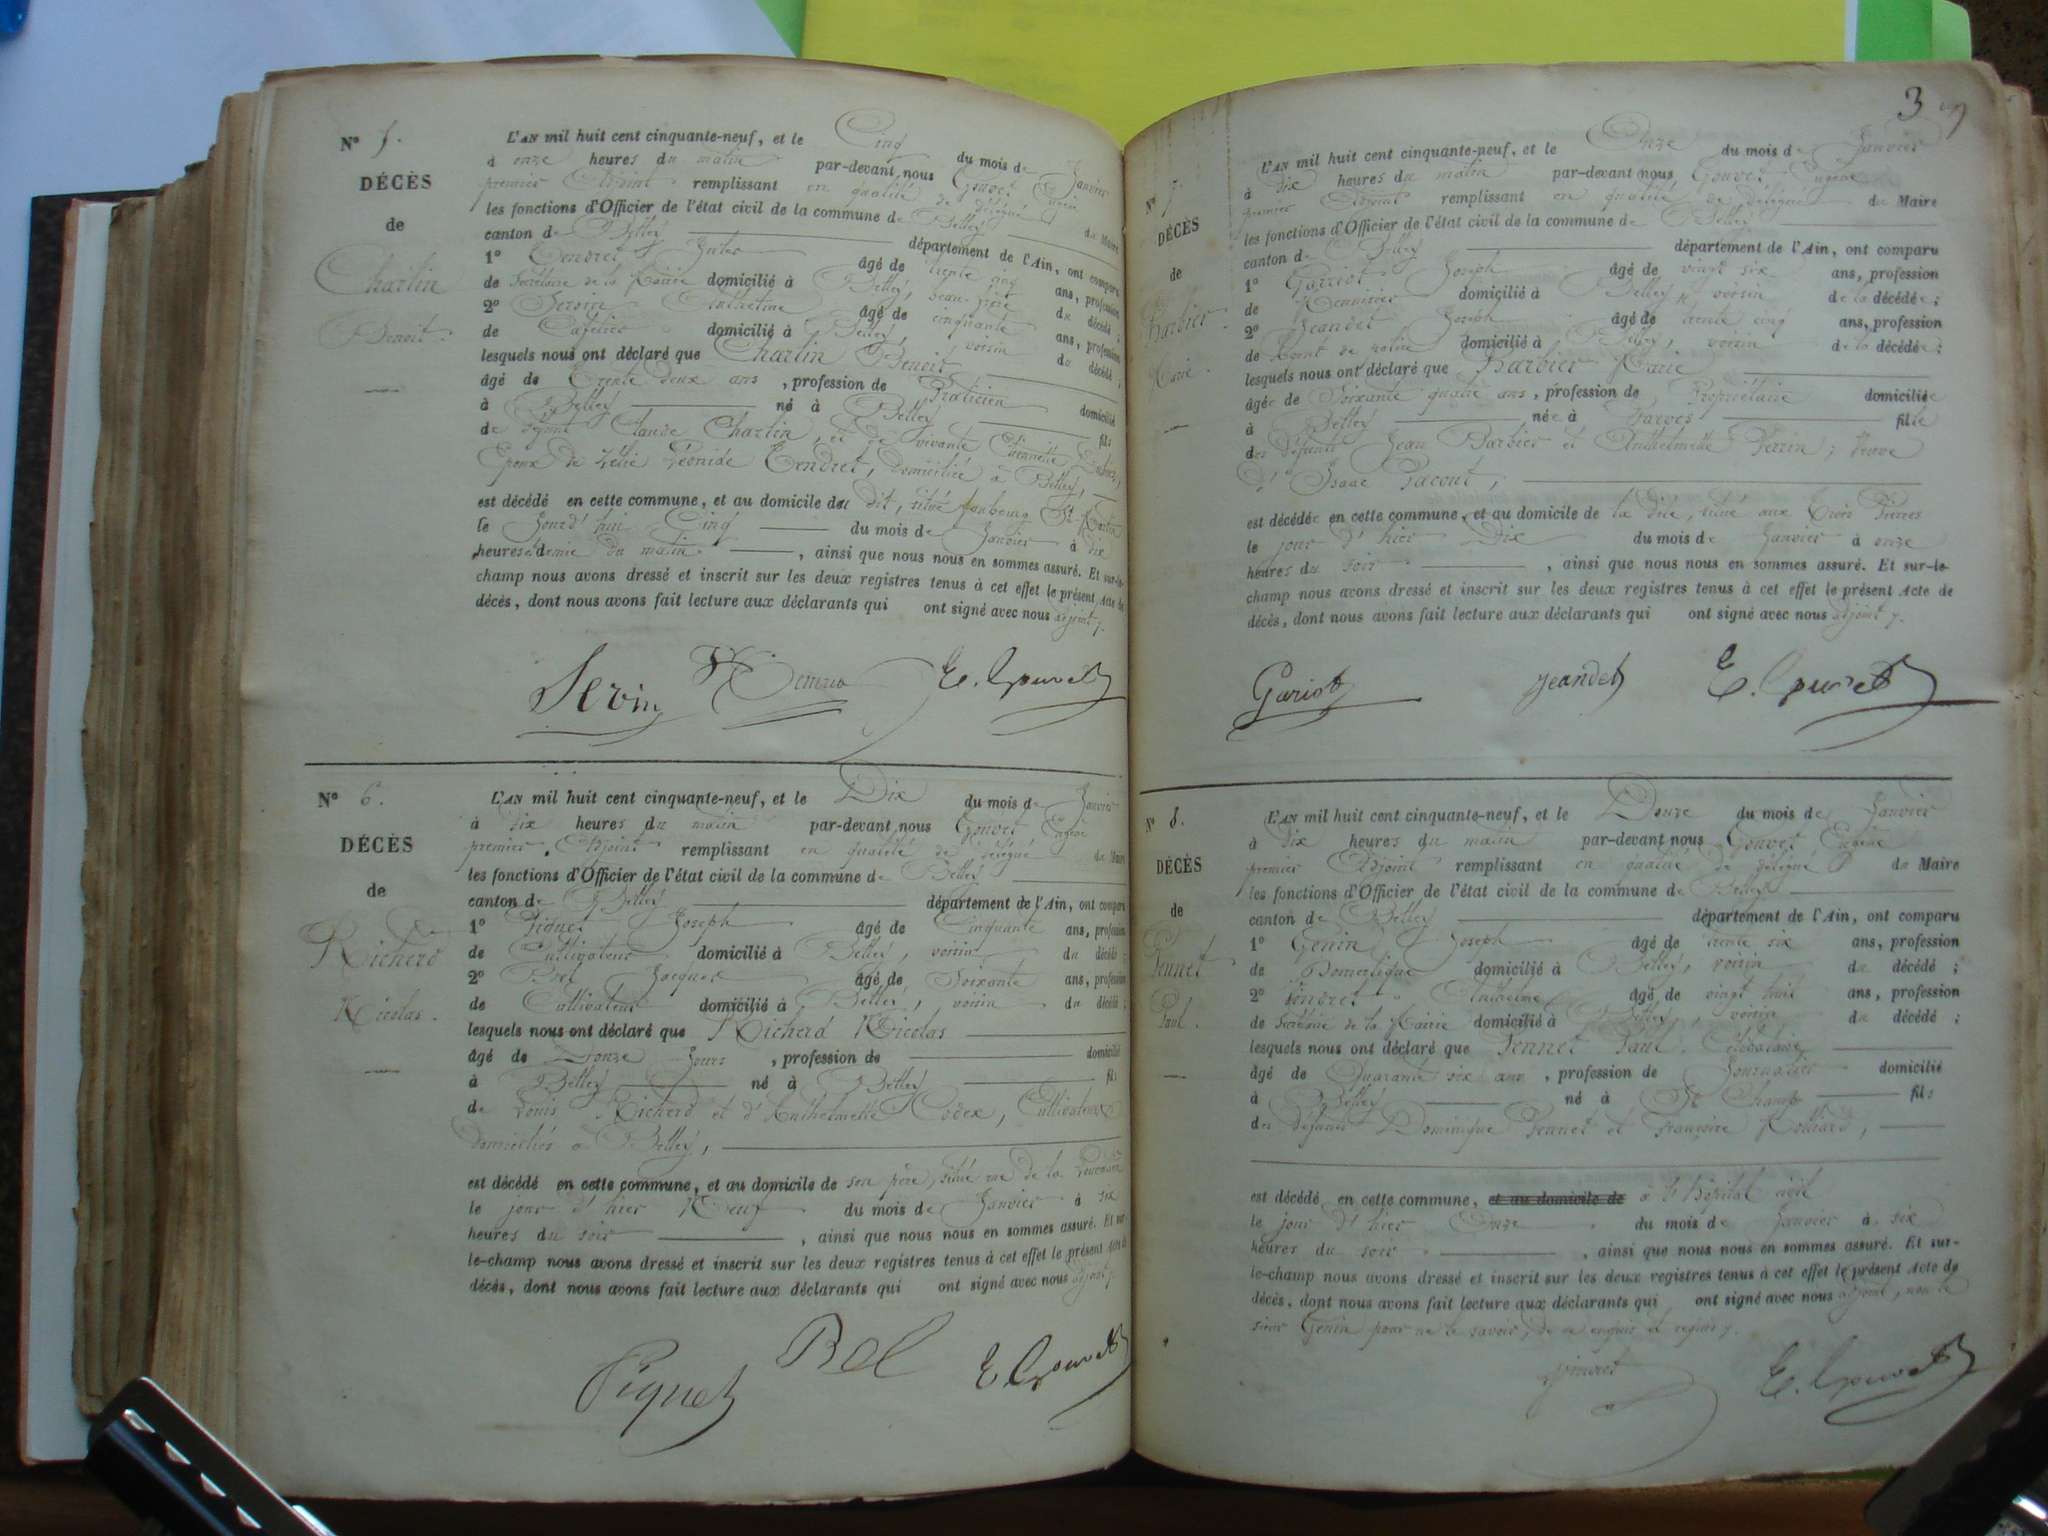 N° 5.
DÉCÈS
de
Charlin
Benoit.
L'AN mil huit cent cinquante-neuf, et le Cinq du mois de Janvier
à onze heures du matin par-devant nous Gouvet Eugène
premier Adjoint remplissant en qualité de délégué du Maire
les fonctions d'Officier de l'état civil de la commune de Belley
canton de Belley département de l'Ain, ont comparu
1° Tendret Jules âgé de trente cinq ans, profession
de Secrétaire de la Mairie domicilié à Belley, beau-frère du décédé ;
2° Servin Anthelme âgé de cinquante ans, profession
de Cafetier domicilié à Belley, voisin du décédé ;
lesquels nous ont déclaré que Charlin Benoit
âgé de Trente deux ans, profession de Praticien domicilié
à Belley né à Belley fils
de défunt Claude Charlin, et de vivante
Epoux de Léonide Tendret, domiciliée à Belley,
est décédé en cette commune, et au domicile du dit, situé faubourg St Martin
le Jourd'hui Cinq du mois de Janvier à dix
heures & demie du matin, ainsi que nous nous en sommes assuré. Et sur-le-
champ nous avons dressé et inscrit sur les deux registres tenus à cet effet le présent Acte de
décès, dont nous avons fait lecture aux déclarants qui ont signé avec nous adjoint.
Servin E. Gouvet
N° 6.
DÉCÈS
de
Richerd
Nicolas.
L'AN mil huit cent cinquante-neuf, et le Dix du mois de Janvier
à dix heures du matin par-devant nous Gouvet Eugène
premier Adjoint remplissant en qualité de délégué du Maire
les fonctions d'Officier de l'état civil de la commune de Belley
canton de Belley département de l'Ain, ont comparu
1° Piguet Joseph âgé de Cinquante ans, profession
de Cultivateur domicilié à Belley, voisin du décédé ;
2° Bel Jacques âgé de Soixante ans, profession
de Cultivateur domicilié à Belley, voisin du décédé ;
lesquels nous ont déclaré que Richerd Nicolas
âgé de Donze Jours, profession de domicilié
à Belley né à Belley fils
de Louis Richerd et d'Anthelmette Codex, Cultivateurs
domiciliés à Belley,
est décédé en cette commune, et au domicile de son père, situé rue de la
le jour d'hier Neuf du mois de Janvier à six
heures du soir, ainsi que nous nous en sommes assuré. Et sur-
le-champ nous avons dressé et inscrit sur les deux registres tenus à cet effet le présent Acte de
décès, dont nous avons fait lecture aux déclarants qui ont signé avec nous adjoint.
Piguet Bel E. Gouvet
3
N° 7.
DÉCÈS
de
Barbier
Marie.
L'AN mil huit cent cinquante-neuf, et le Onze du mois de Janvier
à dix heures du matin par-devant nous Gouvet Eugène
premier Adjoint remplissant en qualité de délégué du Maire
les fonctions d'Officier de l'état civil de la commune de Belley
canton de Belley département de l'Ain, ont comparu
1° Gariot Joseph âgé de vingt six ans, profession
de Menuisier domicilié à Belley, voisin de la décédée ;
2° Jeandet Joseph âgé de trente cinq ans, profession
de domicilié à Belley, voisin de la décédée ;
lesquels nous ont déclaré que Barbier Marie
âgée de Soixante quatre ans, profession de Propriétaire domiciliée
à Belley née à Parves fille
des défunts Jean Barbier et Anthelmette Perrin ; Veuve
d'Isaac Pacout,
est décédée en cette commune, et au domicile de la dite, situé aux Trois Pierres
le jour d'hier Dix du mois de Janvier à onze
heures du soir, ainsi que nous nous en sommes assuré. Et sur-le-
champ nous avons dressé et inscrit sur les deux registres tenus à cet effet le présent Acte de
décès, dont nous avons fait lecture aux déclarants qui ont signé avec nous adjoint.
Gariot Jeandet E. Gouvet
N° 8.
DÉCÈS
de
Pennet
Paul.
L'AN mil huit cent cinquante-neuf, et le Donze du mois de Janvier
à dix heures du matin par-devant nous Gouvet Eugène
premier Adjoint remplissant en qualité de délégué du Maire
les fonctions d'Officier de l'état civil de la commune de Belley
canton de Belley département de l'Ain, ont comparu
1° Genin Joseph âgé de trente six ans, profession
de Domestique domicilié à Belley, voisin du décédé ;
2° Tendret Anthelme âgé de vingt huit ans, profession
de Secrétaire de la Mairie domicilié à Belley, voisin du décédé ;
lesquels nous ont déclaré que Pennet Paul, Célibataire
âgé de Quarante six ans, profession de Journalier domicilié
à Belley né à St Champ fils
des défunts Dominique Pennet et Françoise Rolland,
est décédé en cette commune, et au domicile de à l'hôpital
le jour d'hier Onze du mois de Janvier à six
heures du soir, ainsi que nous nous en sommes assuré. Et sur-
le-champ nous avons dressé et inscrit sur les deux registres tenus à cet effet le présent Acte de
décès, dont nous avons fait lecture aux déclarants qui ont signé avec nous adjoint, non le
sieur Genin pour ne le savoir, de ce enquis et requis.
E. Gouvet